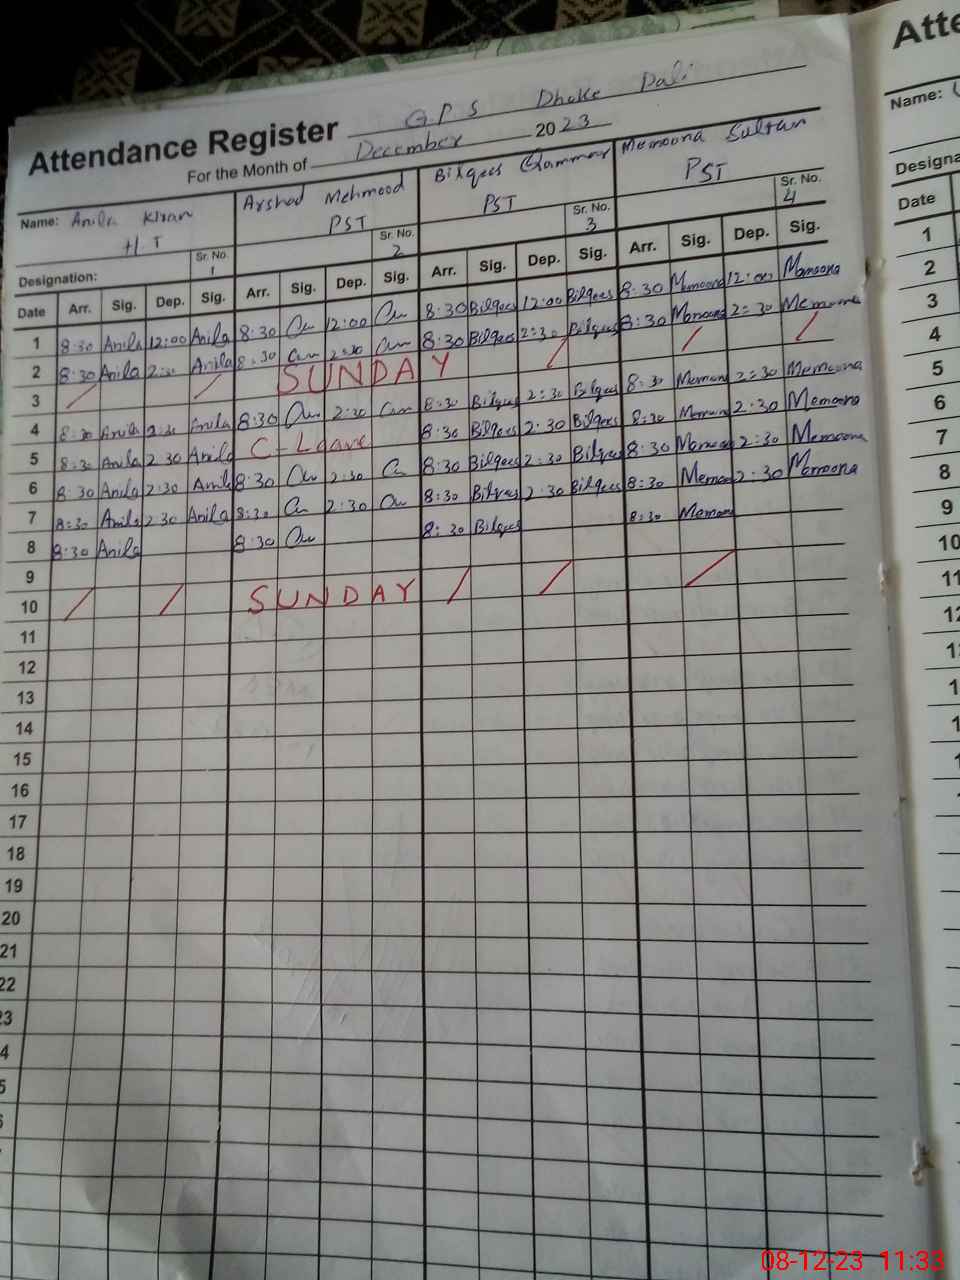 Attendance Register G.P.S Dhoke Dali
For the Month of December 2023
Name: Anila Kiran Arshad Mehmood Bilqees Qammar Memoona Sultan
H T PST PST PST
Designation: Sr. No. 1 Sr. No. 2 Sr. No. 3 Sr. No. 4
Date Arr. Sig. Dep. Sig. Arr. Sig. Dep. Sig. Arr. Sig. Dep. Sig. Arr. Sig. Dep. Sig.
1 8:30 Anila 12:00 Anila 8:30 12:00 8:30 Bilqees 12:00 Bilqees 8:30 Memoona 12:00 Memoona
2 8:30 Anila 2:30 Anila 8:30 2:30 8:30 Bilqees 2:30 Bilqees 8:30 Memoona 2:30 Memoona
3 SUNDAY
4 8:30 Anila 2:30 Anila 8:30 2:30 8:30 Bilqees 2:30 Bilqees 8:30 Memoona 2:30 Memoona
5 8:30 Anila 2:30 Anila C-Leave 8:30 Bilqees 2:30 Bilqees 8:30 Memoona 2:30 Memoona
6 8:30 Anila 2:30 Anila 8:30 2:30 8:30 Bilqees 2:30 Bilqees 8:30 Memoona 2:30 Memoona
7 8:30 Anila 2:30 Anila 8:30 2:30 8:30 Bilqees 2:30 Bilqees 8:30 Memoona 2:30 Memoona
8 8:30 Anila 8:30 8:30 Bilqees 8:30 Memoona
9
10 SUNDAY
11
12
13
14
15
16
17
18
19
20
21
22
23
Name:
Date
1
2
3
4
5
6
7
8
9
10
11
12
08-12-23 11:33